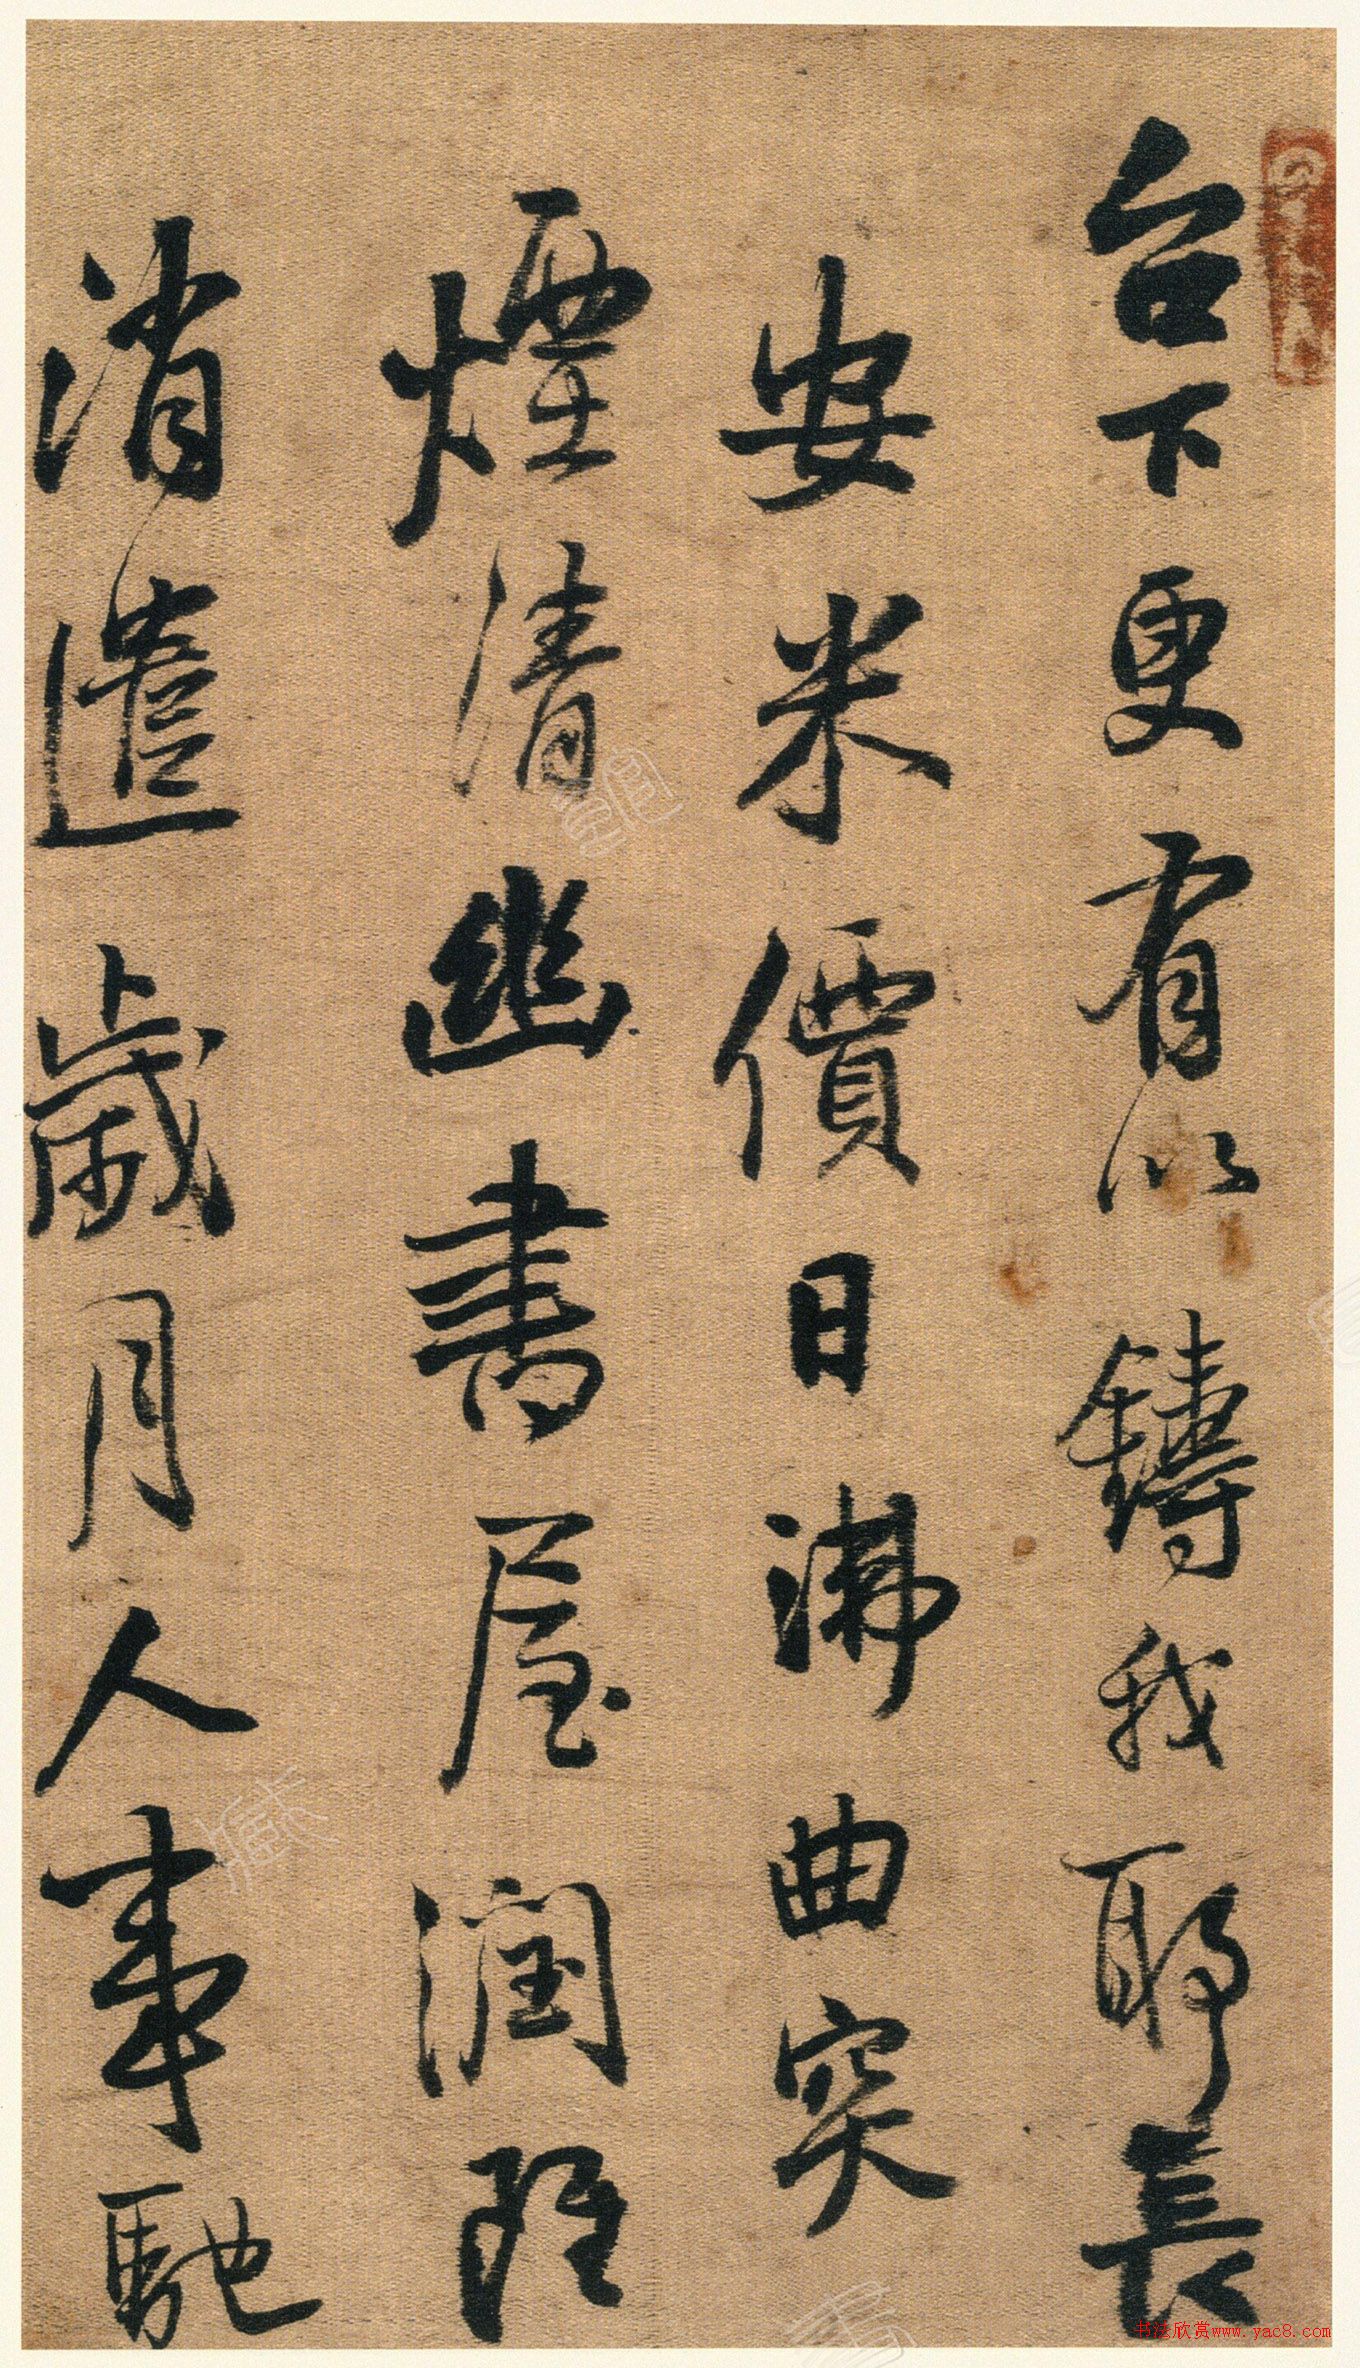 台下更有以鑄我耶長
安米價日沸曲突
煙清幽書屋潤雖
消遣歲月人事馳
书法欣赏www.yac8.com